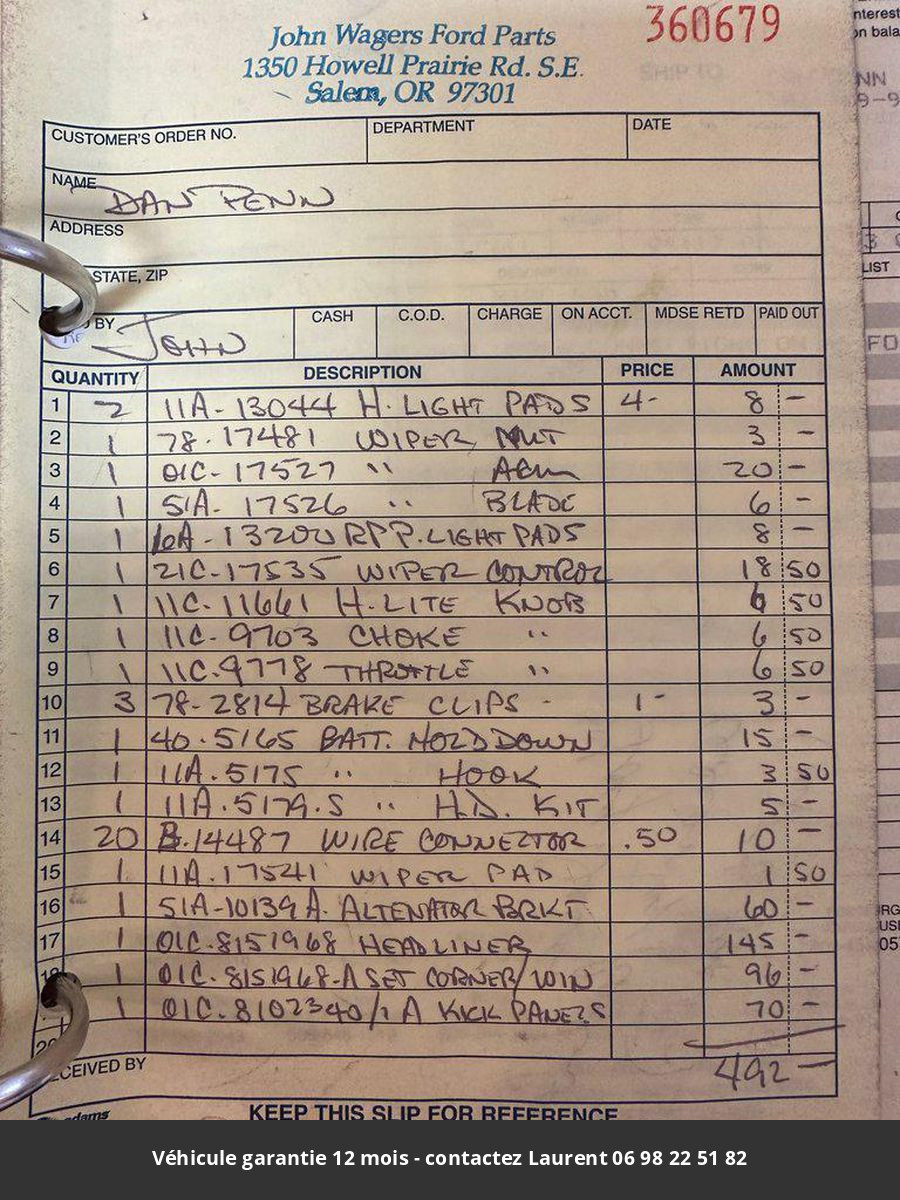 360679
John Wagers Ford Parts
1350 Howell Prairie Rd. S.E.
Salem, OR 97301
SHIP TO
CUSTOMER'S ORDER NO. DEPARTMENT DATE
NAME DAN PENN
ADDRESS
STATE, ZIP
BY JOHN CASH C.O.D. CHARGE ON ACCT. MDSE RETD PAID OUT
QUANTITY DESCRIPTION PRICE AMOUNT
1 2 11A-13044 H.LIGHT PADS 4- 8 -
2 1 78-17481 WIPER NUT 3 -
3 1 01C-17527 " ARM 20 -
4 1 51A-17526 " BLADE 6 -
5 1 13200 P.LIGHT PADS 8 -
6 1 21C-17535 WIPER CONTROL 18 50
7 1 11C-11661 H.LITE KNOB 6 50
8 1 11C-9703 CHOKE " 6 50
9 1 11C-9778 THROTTLE " 6 50
10 3 78-2814 BRAKE CLIPS - 1- 3 -
11 1 40-5165 BATT. HOLD DOWN 15 -
12 1 11A-5175 " HOOK 3 50
13 1 11A-5179.S " H.D. KIT 5 -
14 20 B-14487 WIRE CONNECTOR .50 10 -
15 1 11A-17541 WIPER PAD 1 50
16 1 51A-10139A. ALTENATOR BRKT 60 -
17 1 01C-8151968 HEADLINER 145 -
18 1 01C-8151968-A SET CORNER/WIN 96 -
1 01C-8102340/1 A KICK PANELS 70 -
20
492 -
CEIVED BY
adams
KEEP THIS SLIP FOR REFERENCE
nterest
on bala
NN
9-9
LIST
FO
Véhicule garantie 12 mois - contactez Laurent 06 98 22 51 82